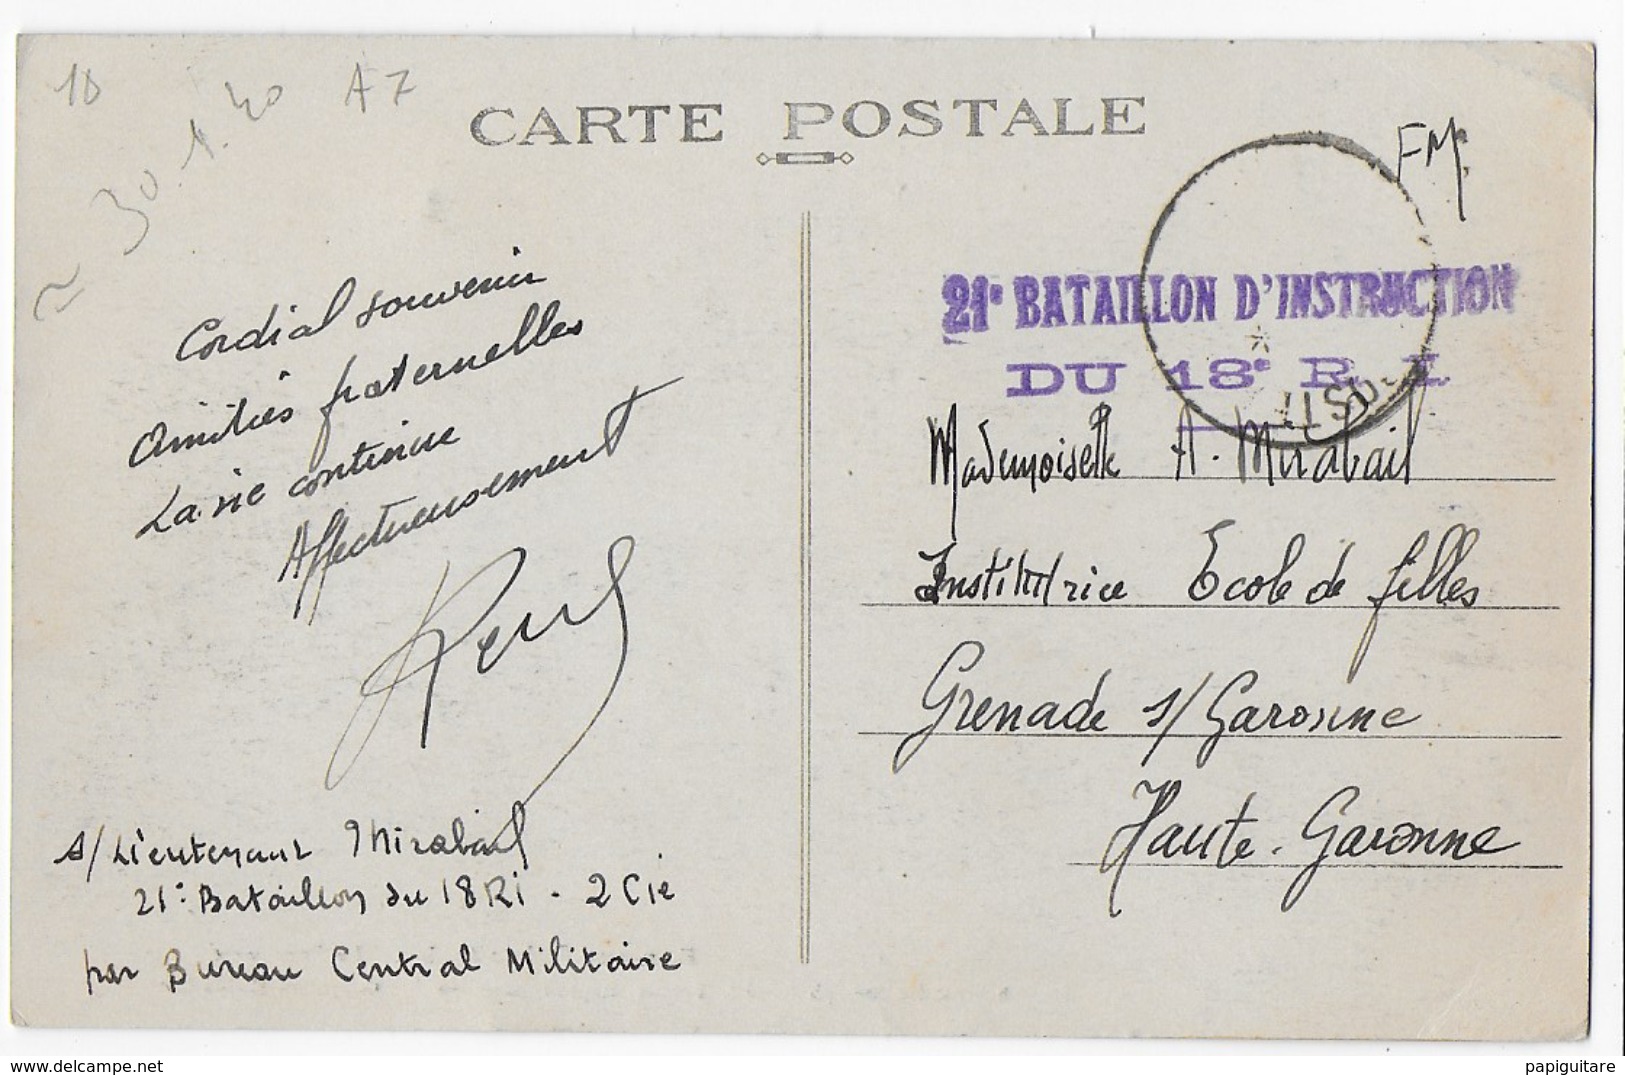 10
≈ 30.1.40
A7
CARTE POSTALE
FM.
21e BATAILLON D'INSTRUCTION
DU 18e R. I.
Cordial souvenir
Amitiés fraternelles
La vie continue
Affectueusement
s/Lieutenant Mirabail
21e Bataillon du 18 RI - 2 Cie
par Bureau Central Militaire
Mademoiselle A. Mirabail
Institutrice Ecole de filles
Grenade s/Garonne
Haute-Garonne
www.delcampe.net
papiguitare